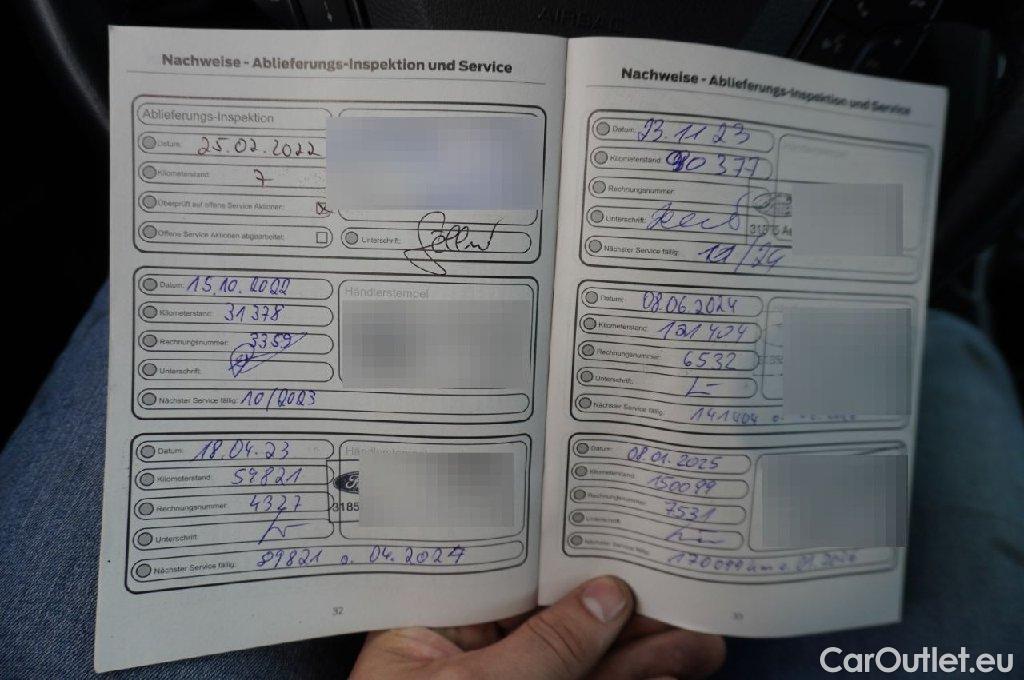 AIRBAG
Nachweise - Ablieferungs-Inspektion und Service
Ablieferungs-Inspektion
Datum: 25.02.2022
Kilometerstand: 7
Überprüft auf offene Service Aktionen:
Offene Service Aktionen abgearbeitet:
Unterschrift:
Datum: 15.10.2022
Kilometerstand: 31378
Rechnungsnummer: 3359
Unterschrift:
Nächster Service fällig: 10/2023
Händlerstempel
Datum: 18.04.23
Kilometerstand: 59821
Rechnungsnummer: 4327
Unterschrift:
Nächster Service fällig: 89821 o. 04.2024
Händlerstempel
3185
32
Nachweise - Ablieferungs-Inspektion und Service
Datum: 23.11.23
Kilometerstand: 90377
Rechnungsnummer:
Unterschrift:
Nächster Service fällig: 11/24
Datum: 08.06.2024
Kilometerstand: 131404
Rechnungsnummer: 6532
Unterschrift:
Nächster Service fällig: 141404 o.
Datum: 08.01.2025
Kilometerstand: 150099
Rechnungsnummer: 7531
Unterschrift:
Nächster Service fällig: 170099 km o. 01.2026
CarOutlet.eu